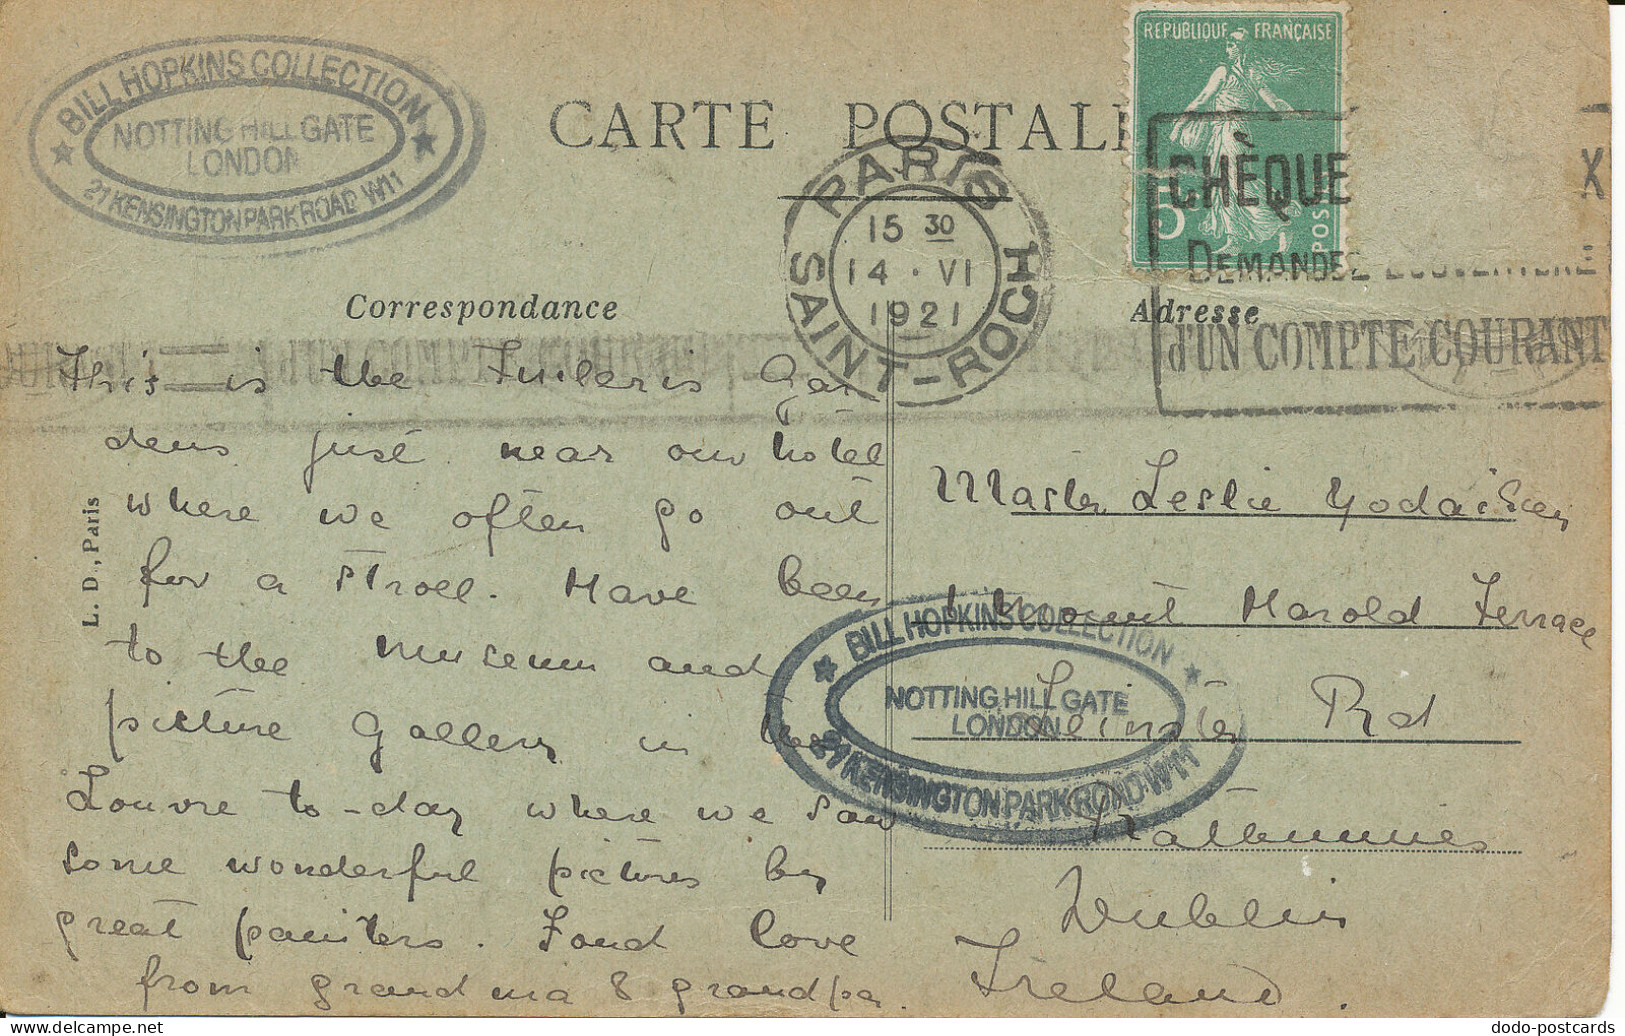 BILL HOPKINS COLLECTION
NOTTING HILL GATE
LONDON
21 KENSINGTON PARK ROAD W11
CARTE POSTALE
REPUBLIQUE FRANÇAISE
5
POSTES
PARIS
15 30
14 · VI
1921
SAINT-ROCH
CHÈQUE X
DEMANDEZ L'OUVERTURE
d'UN COMPTE COURANT
Correspondance
Adresse
This is the Tuileris Gar
dens just near our hotel
where we often go out
for a stroll. Have been
to the museum and
picture Gallery in the
Louvre to-day where we saw
some wonderful pictures by
great painters. Fond love
from grandma & grandpa.
L. D., Paris
Master Leslie Yodaiken
1 Mount Harold Terrace
Leinster Rd
Rathmines
Dublin
Ireland.
BILL HOPKINS COLLECTION
NOTTING HILL GATE
LONDON
21 KENSINGTON PARK ROAD W11
dodo-postcards